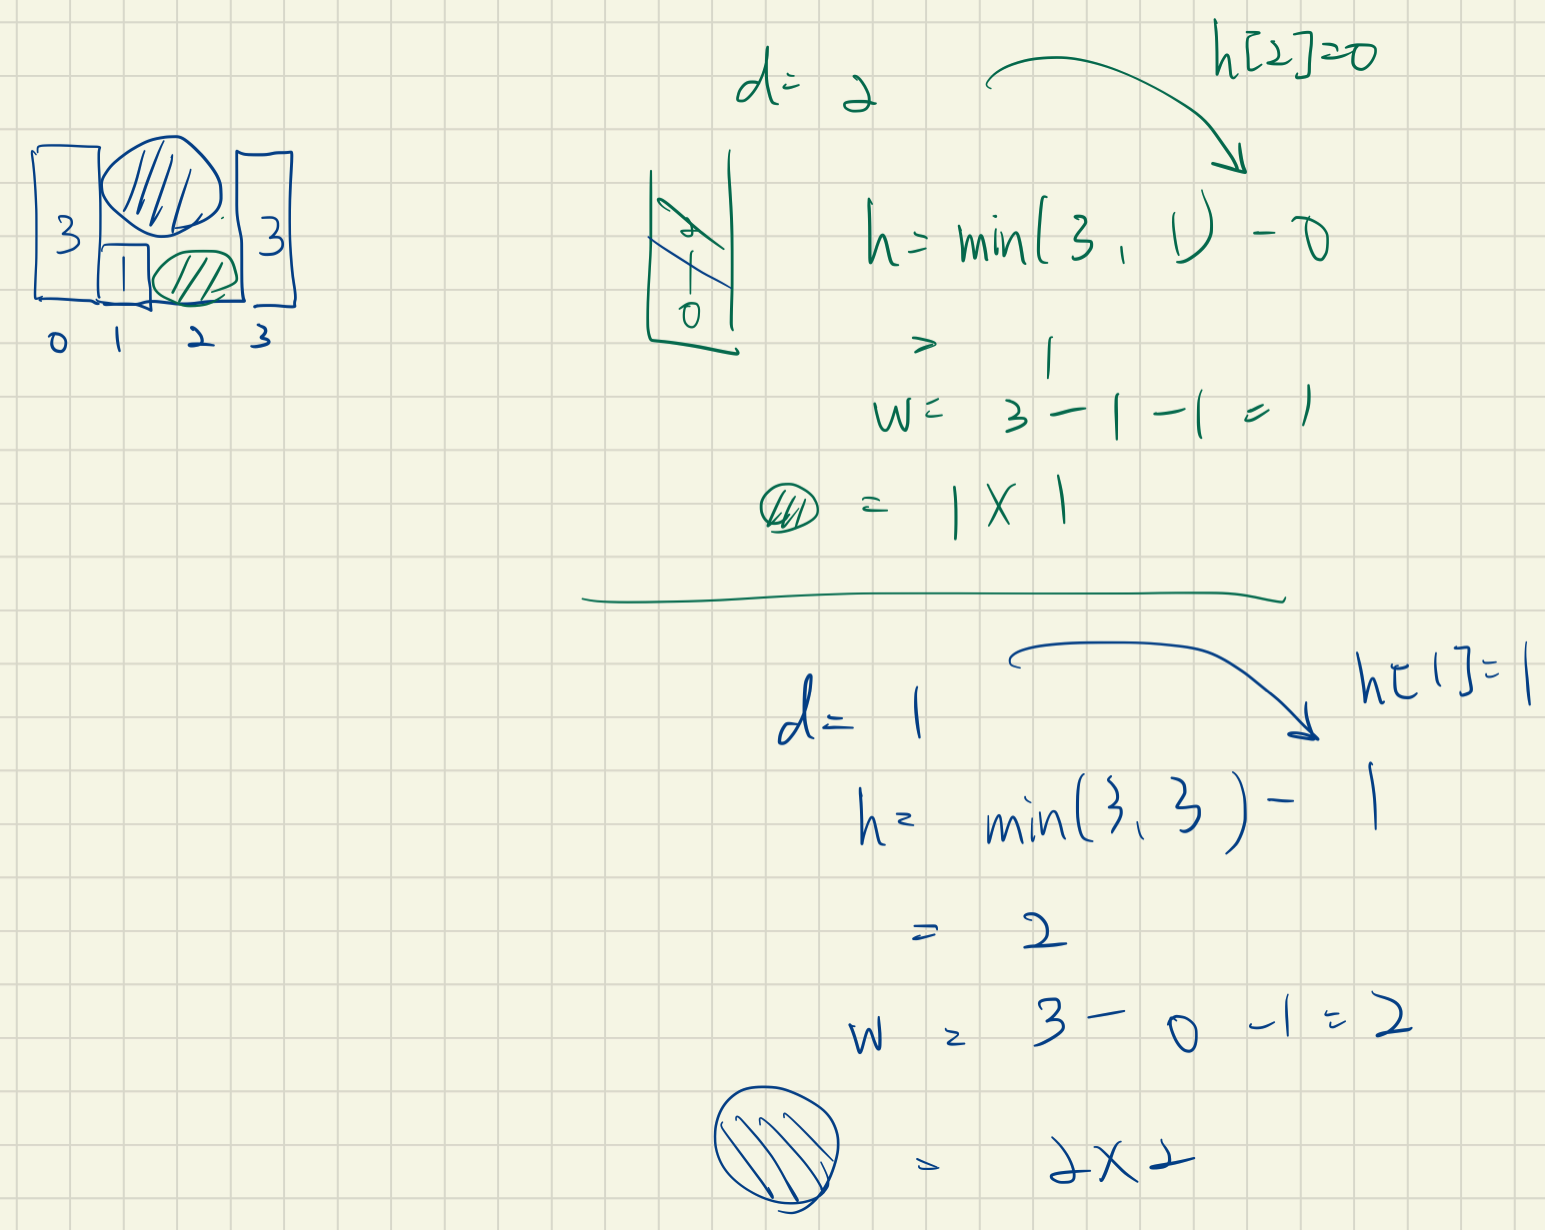 3 1 3
0 1 2 3
2
1
0
d = 2
h[2]=0
h = min(3, 1) - 0
= 1
w = 3 - 1 - 1 = 1
= 1 X 1
d = 1
h[1]=1
h = min(3, 3) - 1
= 2
w = 3 - 0 - 1 = 2
= 2 X 2